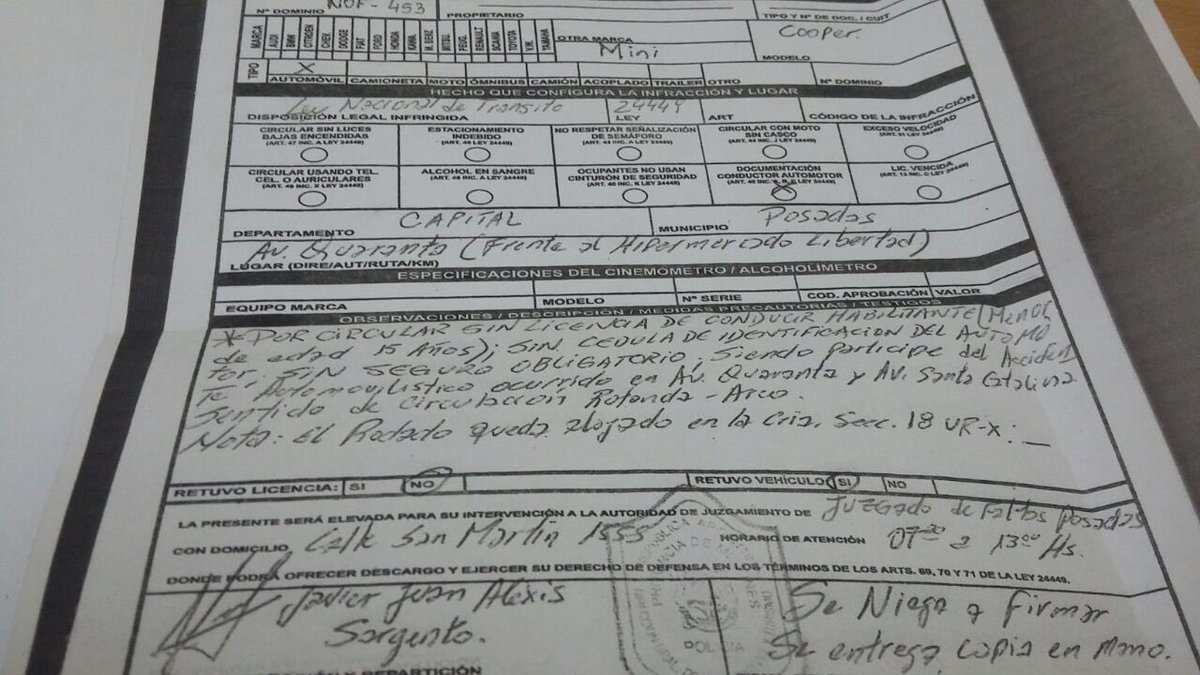 Nº DOMINIO NOF-453 PROPIETARIO TIPO Y Nº DE DOC. / CUIT
MARCA AUDI BMW CITROEN CHEV. DODGE FIAT FORD HONDA KAWA. M. BENZ MITSU. PEUG. RENAULT SCANIA TOYOTA V.W. YAMAHA OTRA MARCA Mini Cooper. MODELO
TIPO X AUTOMÓVIL CAMIONETA MOTO ÓMNIBUS CAMIÓN ACOPLADO TRAILER OTRO Nº DOMINIO
HECHO QUE CONFIGURA LA INFRACCIÓN Y LUGAR
Ley Nacional de Transito 24449
DISPOSICIÓN LEGAL INFRINGIDA LEY ART CÓDIGO DE LA INFRACCIÓN
CIRCULAR SIN LUCES BAJAS ENCENDIDAS (ART. 47 INC. A LEY 24449)
ESTACIONAMIENTO INDEBIDO
NO RESPETAR SEÑALIZACIÓN DE SEMÁFORO (ART. 44 INC. A LEY 24449)
CIRCULAR CON MOTO SIN CASCO
EXCESO VELOCIDAD
CIRCULAR USANDO TEL. CEL. O AURICULARES (ART. 48 INC. X LEY 24449)
ALCOHOL EN SANGRE (ART. 48 INC. A LEY 24449)
OCUPANTES NO USAN CINTURÓN DE SEGURIDAD (ART. 40 INC. K LEY 24449)
DOCUMENTACIÓN CONDUCTOR AUTOMOTOR
LIC. VENCIDA
DEPARTAMENTO CAPITAL MUNICIPIO Posadas
Av. Quaranta (Frente al Hipermercado Libertad)
LUGAR (DIRE/AUT/RUTA/KM)
ESPECIFICACIONES DEL CINEMÓMETRO / ALCOHOLÍMETRO
EQUIPO MARCA MODELO Nº SERIE COD. APROBACIÓN VALOR
OBSERVACIONES / DESCRIPCIÓN / MEDIDAS PRECAUTORIAS / TESTIGOS
* POR CIRCULAR SIN LICENCIA DE CONDUCIR HABILITANTE (Menor
de edad 15 AÑOS); SIN CEDULA DE IDENTIFICACION DEL AUTOMO
tor. SIN SEGURO OBLIGATORIO; Siendo Participe del Acciden
Te Automovilistico ocurrido en Av. Quaranta y Av. Santa Catalina
Sentido de Circulacion Rotonda - Arco.
Nota: El Rodado queda alojado en la Cria. Secc. 18 UR-X: _
RETUVO LICENCIA: SI NO RETUVO VEHÍCULO: SI NO
LA PRESENTE SERÁ ELEVADA PARA SU INTERVENCIÓN A LA AUTORIDAD DE JUZGAMIENTO DE Juzgado de Faltas Posadas
CON DOMICILIO Calle San Martin 1555 HORARIO DE ATENCIÓN 07:30 a 13:00 Hs.
DONDE PODRÁ OFRECER DESCARGO Y EJERCER SU DERECHO DE DEFENSA EN LOS TÉRMINOS DE LOS ARTS. 69, 70 Y 71 DE LA LEY 24449.
Javier Juan Alexis
Sargento.
Se Niega a firmar
Se entrega copia en Mano.